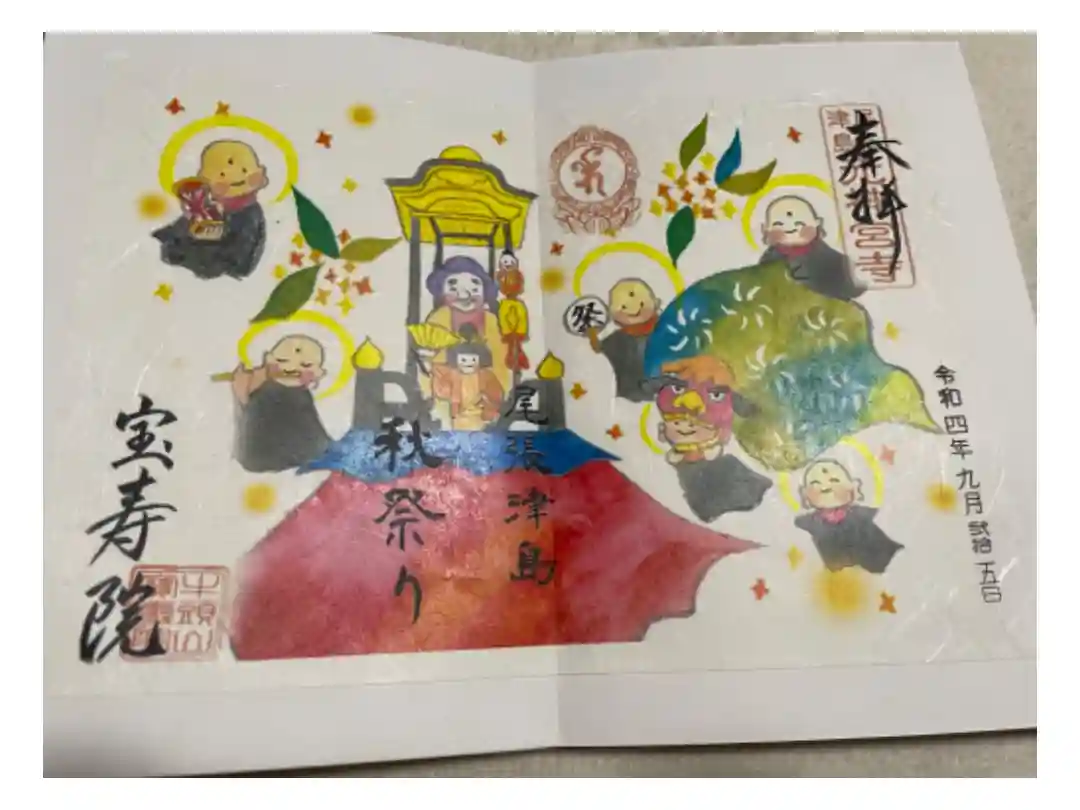 奉拝
令和四年九月弐拾五日
祭
尾張津島
秋祭り
宝寿院